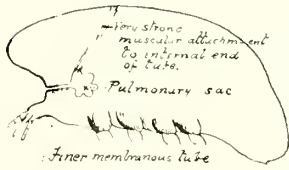 Very strong
muscular attachment
to internal end
of tube.
Pulmonary sac
Finer membranous tube